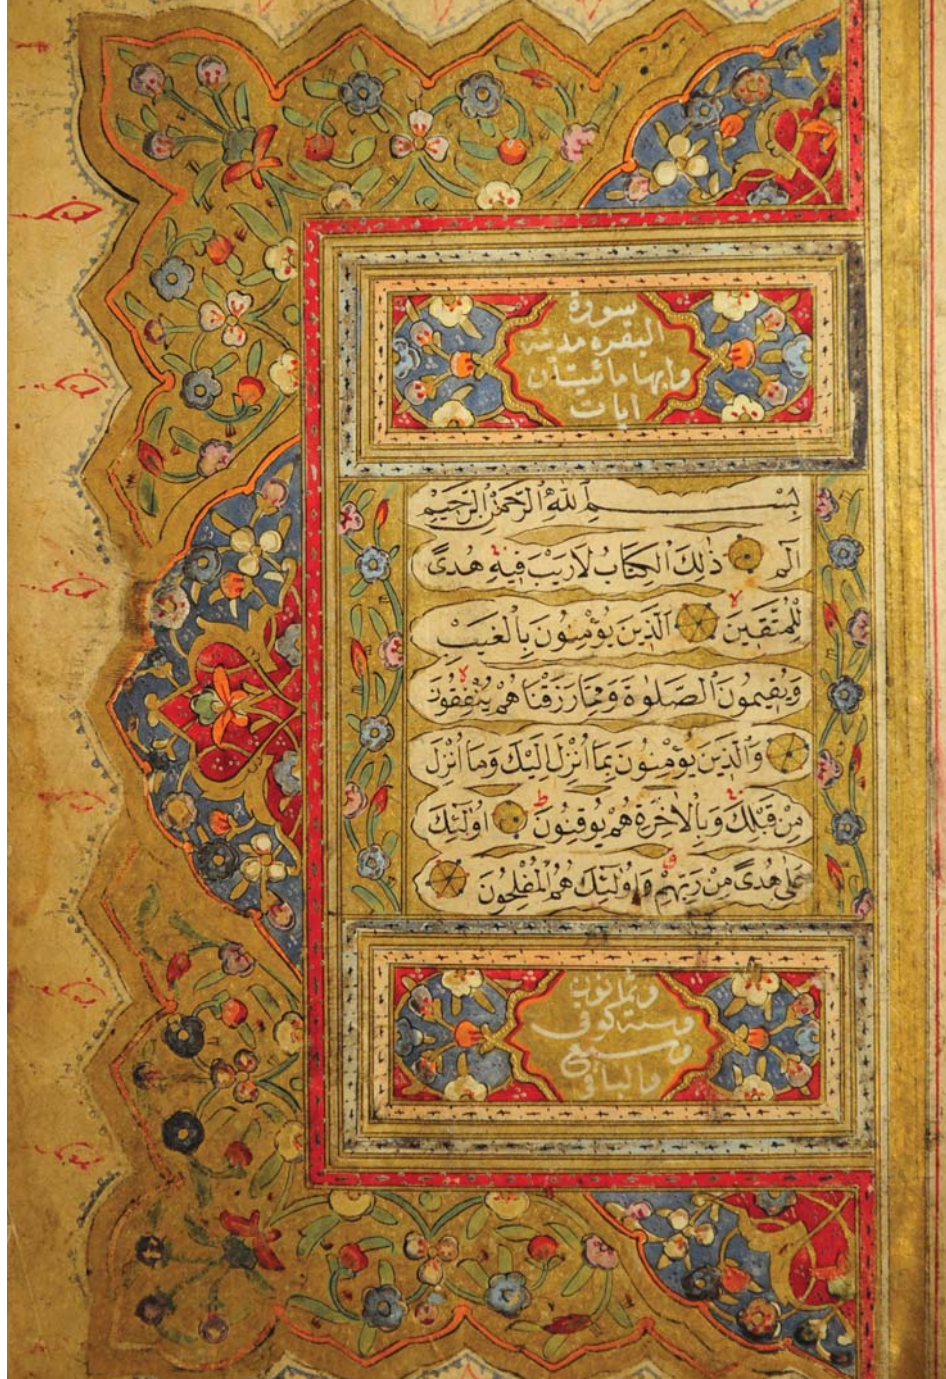 سورة
البقره مدنية
وايها مائيتان
ايات
بِسْمِ اللّٰهِ الرَّحْمٰنِ الرَّحِيمِ
الٓمٓ ذٰلِكَ الْكِتَابُ لَا رَيْبَ فِيهِ هُدًى
لِلْمُتَّقِينَ الَّذِينَ يُؤْمِنُونَ بِالْغَيْبِ
وَيُقِيمُونَ الصَّلٰوةَ وَمِمَّا رَزَقْنَاهُمْ يُنْفِقُونَ
وَالَّذِينَ يُؤْمِنُونَ بِمَا اُنْزِلَ لَيْكَ وَمَا اُنْزِلَ
مِنْ قَبْلِكَ وَبِالْاٰخِرَةِ هُمْ يُوقِنُونَ اُولٰئِكَ
عَلٰى هُدًى مِنْ رَبِّهِمْ وَاُولٰئِكَ هُمُ الْمُفْلِحُونَ
وثمانون
وستة كوفى
وسبع